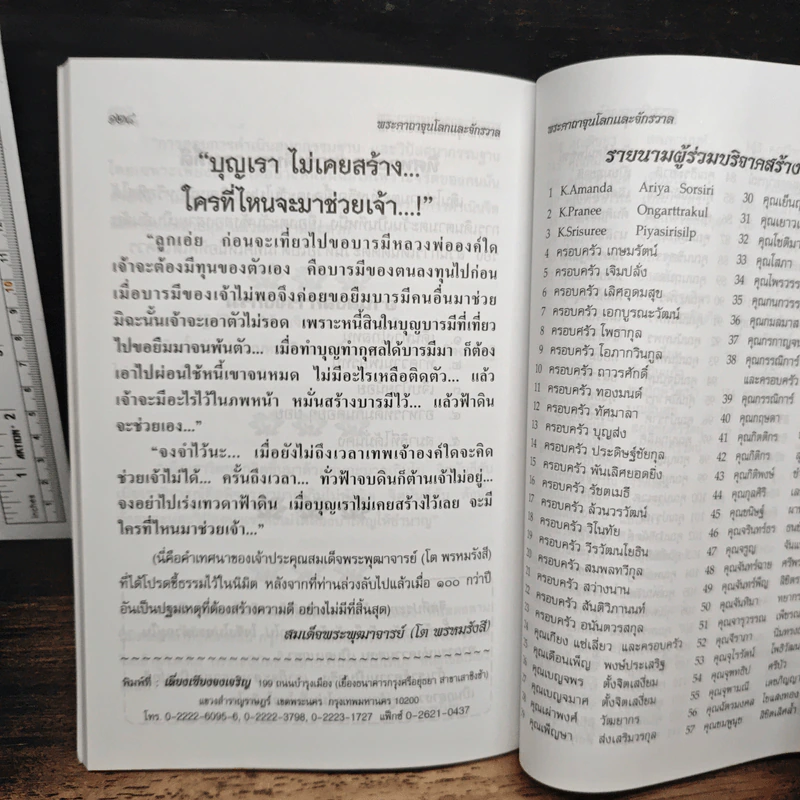 ๑๒๘
พระคาถาจุนโลกและจักรวาล
“บุญเรา ไม่เคยสร้าง...
ใครที่ไหนจะมาช่วยเจ้า...!”
“ลูกเอ่ย ก่อนจะเที่ยวไปขอบารมีหลวงพ่อองค์ใด
เจ้าจะต้องมีทุนของตัวเอง คือบารมีของตนลงทุนไปก่อน
เมื่อบารมีของเจ้าไม่พอจึงค่อยขอยืมบารมีคนอื่นมาช่วย
มิฉะนั้นเจ้าจะเอาตัวไม่รอด เพราะหนี้สินในบุญบารมีที่เที่ยว
ไปขอยืมมาจนพ้นตัว... เมื่อทำบุญทำกุศลได้บารมีมา ก็ต้อง
เอาไปผ่อนใช้หนี้เขาจนหมด ไม่มีอะไรเหลือติดตัว... แล้ว
เจ้าจะมีอะไรไว้ในภพหน้า หมั่นสร้างบารมีไว้... แล้วฟ้าดิน
จะช่วยเอง...”
“จงจำไว้นะ... เมื่อยังไม่ถึงเวลาเทพเจ้าองค์ใดจะคิด
ช่วยเจ้าไม่ได้... ครั้นถึงเวลา... ทั่วฟ้าจบดินก็ต้านเจ้าไม่อยู่...
จงอย่าไปเร่งเทวดาฟ้าดิน เมื่อบุญเราไม่เคยสร้างไว้เลย จะมี
ใครที่ไหนมาช่วยเจ้า...”
(นี่คือคำเทศนาของเจ้าประคุณสมเด็จพระพุฒาจารย์ (โต พรหมรังสี)
ที่ได้โปรดชี้ธรรมไว้ในนิมิต หลังจากที่ท่านล่วงลับไปแล้วเมื่อ ๑๐๐ กว่าปี
อันเป็นปฐมเหตุที่ต้องสร้างความดี อย่างไม่มีที่สิ้นสุด)
สมเด็จพระพุฒาจารย์ (โต พรหมรังสี)
พิมพ์ที่ : เลี่ยงเชียงจงเจริญ 199 ถนนบำรุงเมือง (เยื้องธนาคารกรุงศรีอยุธยา สาขาเสาชิงช้า)
แขวงสำราญราษฎร์ เขตพระนคร กรุงเทพมหานคร 10200
โทร. 0-2222-6095-6, 0-2222-3798, 0-2223-1727 แฟ็กซ์ 0-2621-0437
พระคาถาจุนโลกและจักรวาล
รายนามผู้ร่วมบริจาคสร้าง
1 K.Amanda Ariya Sorsiri
2 K.Pranee Ongarttrakul
3 K.Srisuree Piyasirisilp
4 ครอบครัว เกษมรัตน์
5 ครอบครัว เจิมปลั่ง
6 ครอบครัว เลิศอุดมสุข
7 ครอบครัว เอกบูรณะวัฒน์
8 ครอบครัว โพธากุล
9 ครอบครัว โอภากวินกูล
10 ครอบครัว ถาวรศักดิ์
11 ครอบครัว ทองมนต์
12 ครอบครัว ทัศมาลา
13 ครอบครัว บุญส่ง
14 ครอบครัว ประดิษฐ์ชัยกุล
15 ครอบครัว พันเลิศยอดยิ่ง
16 ครอบครัว รัชตเมธี
17 ครอบครัว ล้วนวรวัฒน์
18 ครอบครัว วิไนทัย
19 ครอบครัว วีรวัฒนโยธิน
20 ครอบครัว สมพลทวีกุล
21 ครอบครัว สว่างนาน
22 ครอบครัว สันติวิภานนท์
23 ครอบครัว อนันตวรสกุล
คุณเกียง แซ่เลี่ยว และครอบครัว
คุณเดือนเพ็ญ พงษ์ประเสริฐ
คุณเบญจพร ตั้งจิตเสงี่ยม
คุณเบญจมาศ ตั้งจิตเสงี่ยม
คุณเผ่าพงศ์ วัฒยากร
คุณเพ็ญษา ส่งเสริมวรกุล
30
31
32
33 คุณโสภา
34
35
36
37
38 คุณกรรณิการ์
และครอบครัว
39 คุณกรรณิการ์
40 คุณกฤษดา
41 คุณกิตติกร
42 คุณกิติกร
43 คุณกิติพงษ์
44 คุณกุลศิริ
45 คุณขนิษฐ์
46 คุณจรินทร์อร
47 คุณจรูญ
48 คุณจันทร์ฉาย
49 คุณจันทร์เพ็ญ
50 คุณจันทิมา
51 คุณจารุวรรณ
52 คุณจีราภา
53 คุณจุไรรัตน์
54 คุณจุฑาทิป
55 คุณจุฑามณี
56 คุณฉัตรมงคล
57 คุณชมพูนุช